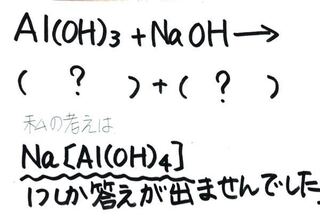 Al(OH)₃+NaOH→
( ? )+( ? )
私の考えは
Na[Al(OH)₄]
1つしか答えが出ませんでした